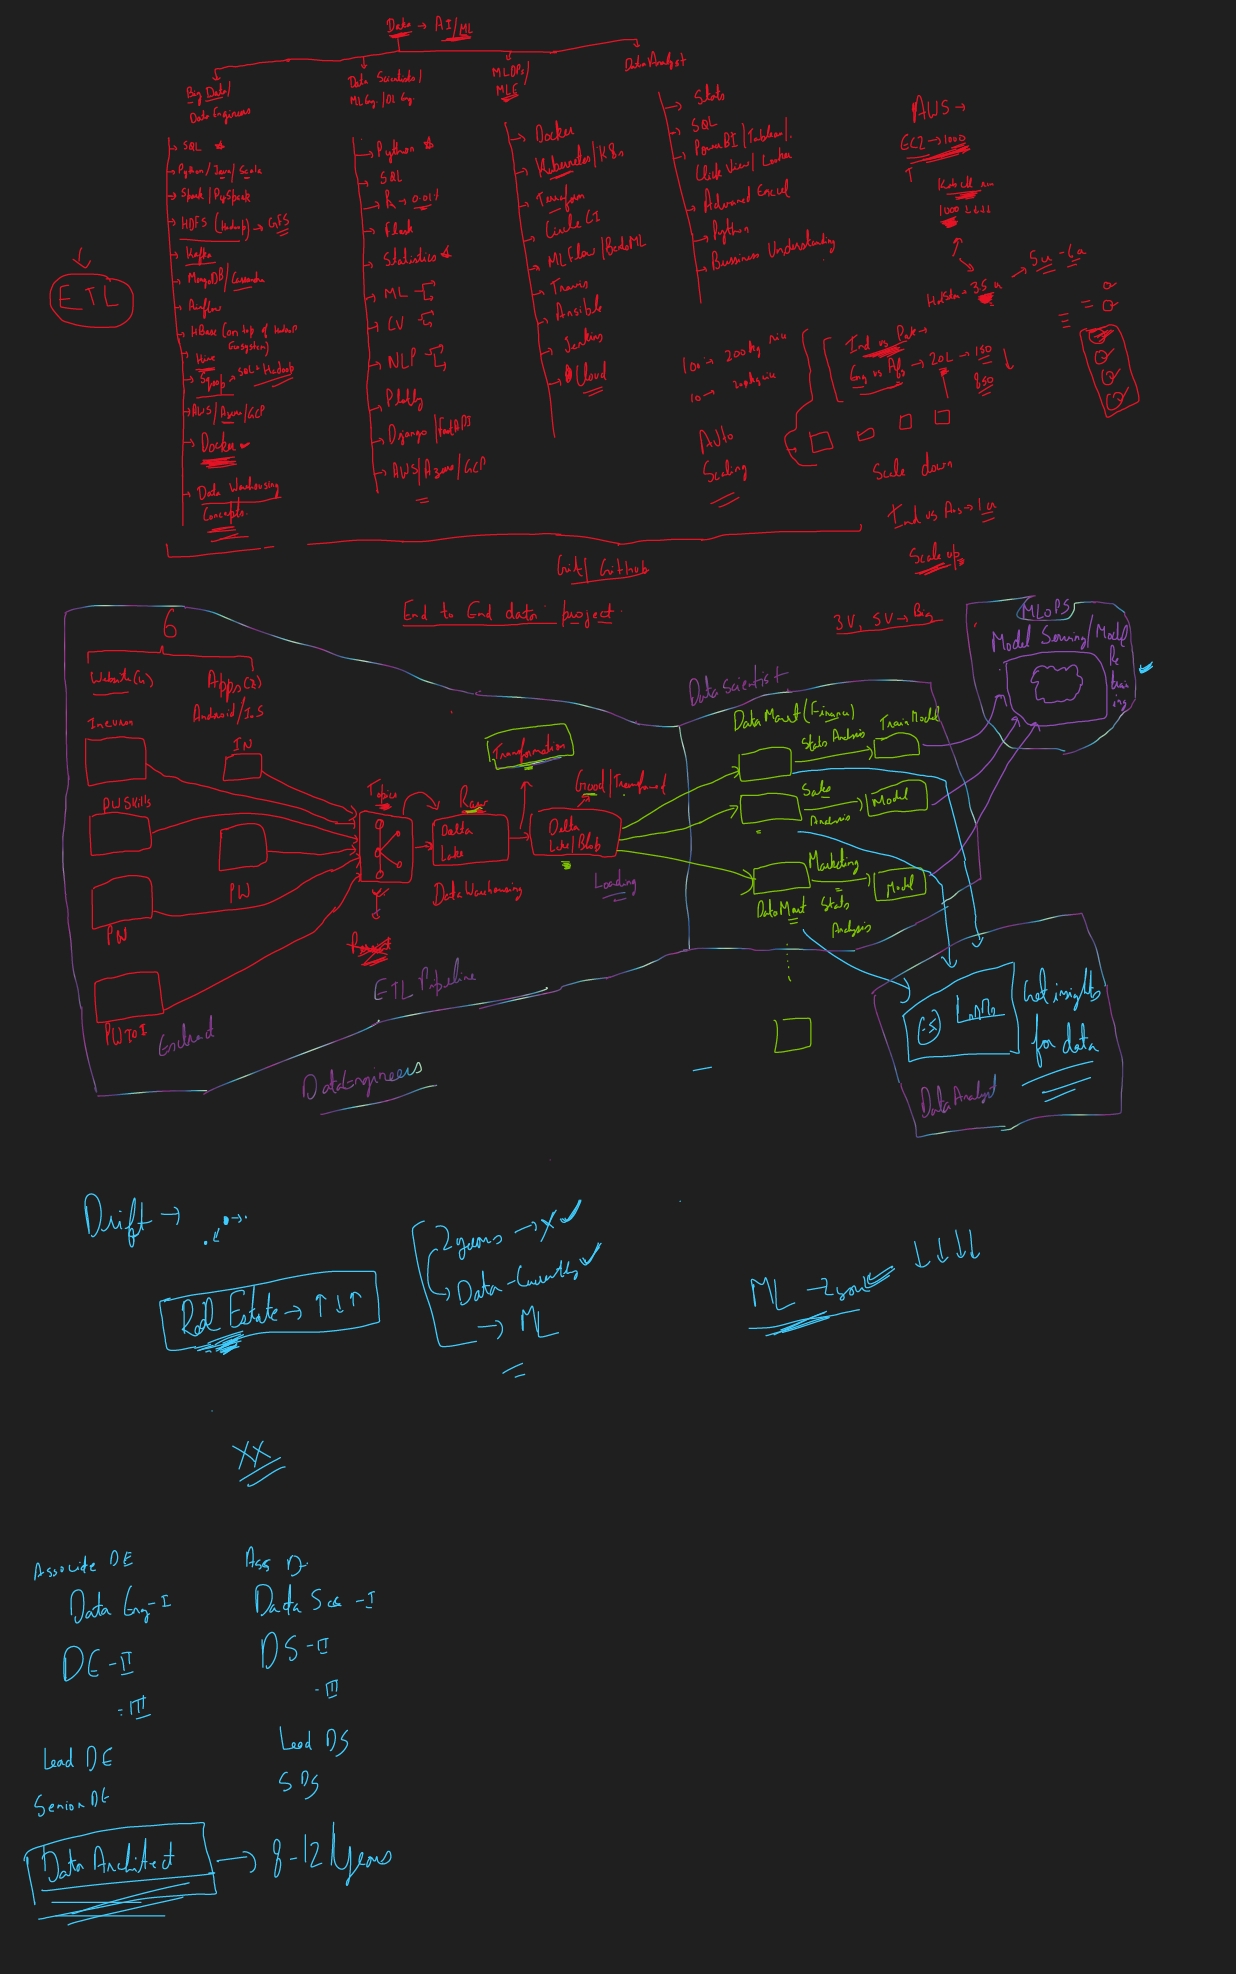 Data → AI/ML
Big Data/
Data Engineers
→ SQL
→ Python/Java/Scala
→ Spark/PySpark
→ HDFS (Hadoop) → GFS
→ Kafka
→ MongoDB/Cassandra
→ Airflow
→ HBase (on top of Hadoop
Ecosystem)
→ Hive
→ Sqoop → SQL + Hadoop
→ AWS/Azure/GCP
→ Docker
→ Data Warehousing
Concepts.
ETL
Data Scientists/
ML Eng./DL Eng.
→ Python
→ SQL
→ R → 0.01%
→ Flask
→ Statistics
→ ML
→ CV
→ NLP
→ Plotly
→ Django/FastAPI
→ AWS/Azure/GCP
MLOPs/
MLE
→ Docker
→ Kubernetes/K8s
→ Terraform
→ Circle CI
→ MLFlow/BentoML
→ Travis
→ Ansible
→ Jenkins
→ Cloud
Data Analyst
→ Stats
→ SQL
→ PowerBI/Tableau/
Click View/Looker
→ Advanced Excel
→ Python
→ Bussiness Understanding
AWS →
EC2 → 1000
1000 ↓↓↓↓
Hotstar = 35 u → 5u - 6a
Ind vs Pak →
Eng vs Afg → 20L → 150 ↓
850
100 → 200kg rice
10 → 20kg rice
Auto
Scaling
Scale down
Ind vs Aus → 1 u
Scale up
Git/GitHub
End to End data project.
3V, 5V → Big
6
Website(4)
Apps(2)
Android/IoS
Ineuron
IN
PWSkills
PW
PW
PWIOI
Extract
Topics
Raw
Delta
Lake
Data Warehousing
Transformation
Good/Transformed
Delta
Lake/Blob
Loading
ETL Pipeline
Data Engineers
Data Scientist
Data Mart (Finance)
Stats Analysis
Train Model
Sales
Analysis
Model
Marketing
Data Mart
Stats
Analysis
Model
MLOPS
Model Serving/Model
Re
train
ing
Get insights
for data
Data Analyst
Drift →
Real Estate → ↑↓↑
2 years → X
→ ML
ML → 2 year ↓↓↓↓
XX
Associate DE
Data Eng - I
DE - II
- III
Lead DE
Senior DE
Data Architect → 8-12 Years
Ass D
Data Sce - I
DS - II
- III
Lead DS
SDS